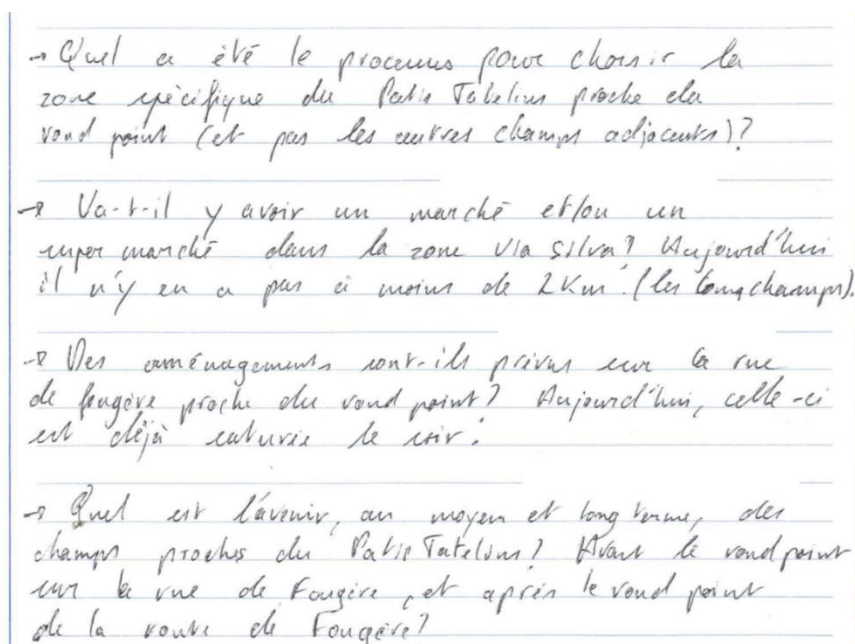 → Quel a été le processus pour choisir la
zone spécifique du Patis Tatelius proche du
rond point (et pas les autres champs adjacents)?
→ Va-t-il y avoir un marché et/ou un
super marché dans la zone Via Silva? Aujourd'hui
il n'y en a pas à moins de 2 Km. (les longchamps).
→ Des aménagements sont-ils prévus sur la rue
de fougère proche du rond point? Aujourd'hui, celle-ci
est déjà saturée le soir.
→ Quel est l'avenir, au moyen et long terme, des
champs proches du Patis Tatelius? Avant le rond point
sur la rue de Fougère, et après le rond point
de la route de Fougère?